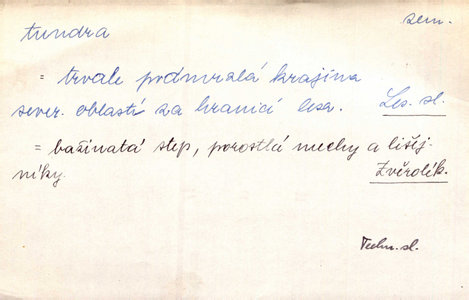 tundra
sem.
= trvale podmrzlá krajina
sever. oblastí za hranicí lesa. Les. sl.
= bažinatá step, porostlá mechy a lišej-
níky. Zvěrolék.
Techn. sl.